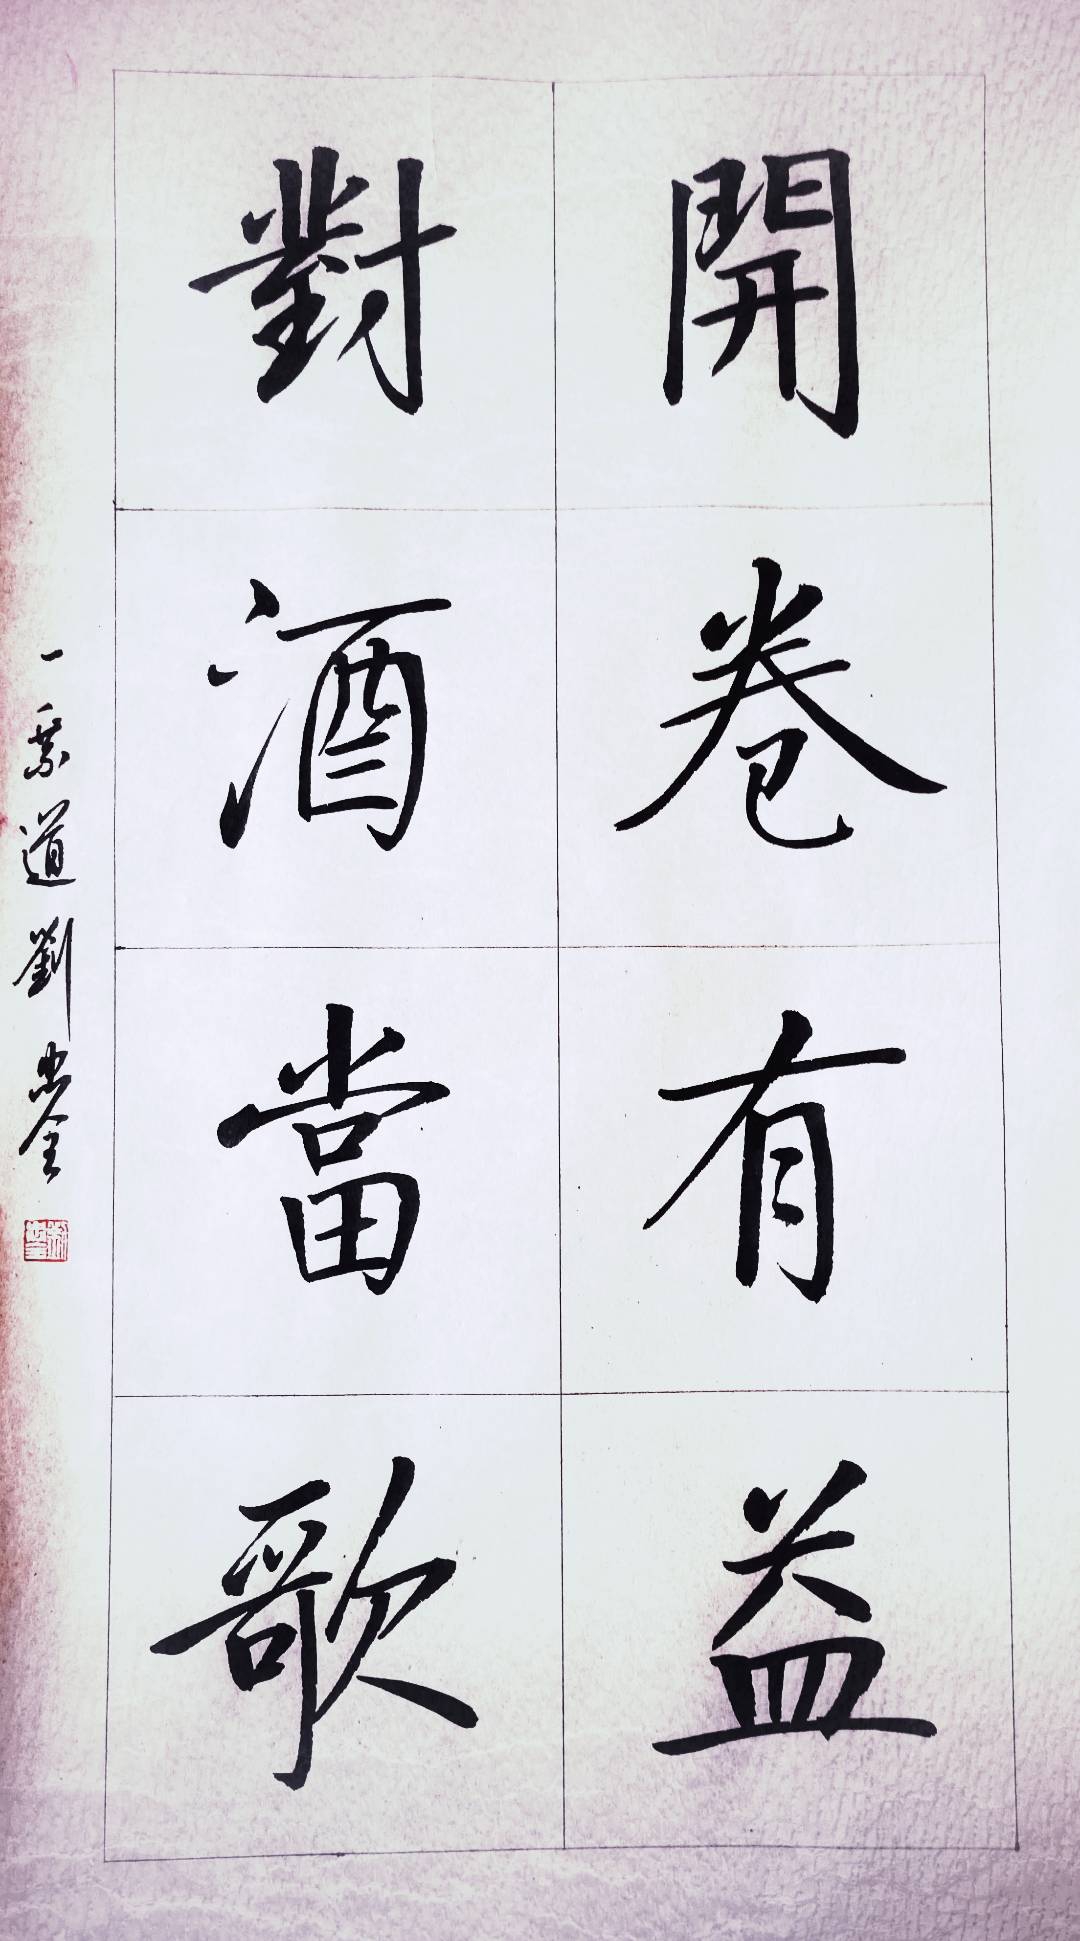 開卷有益
對酒當歌
一乘道劉忠全